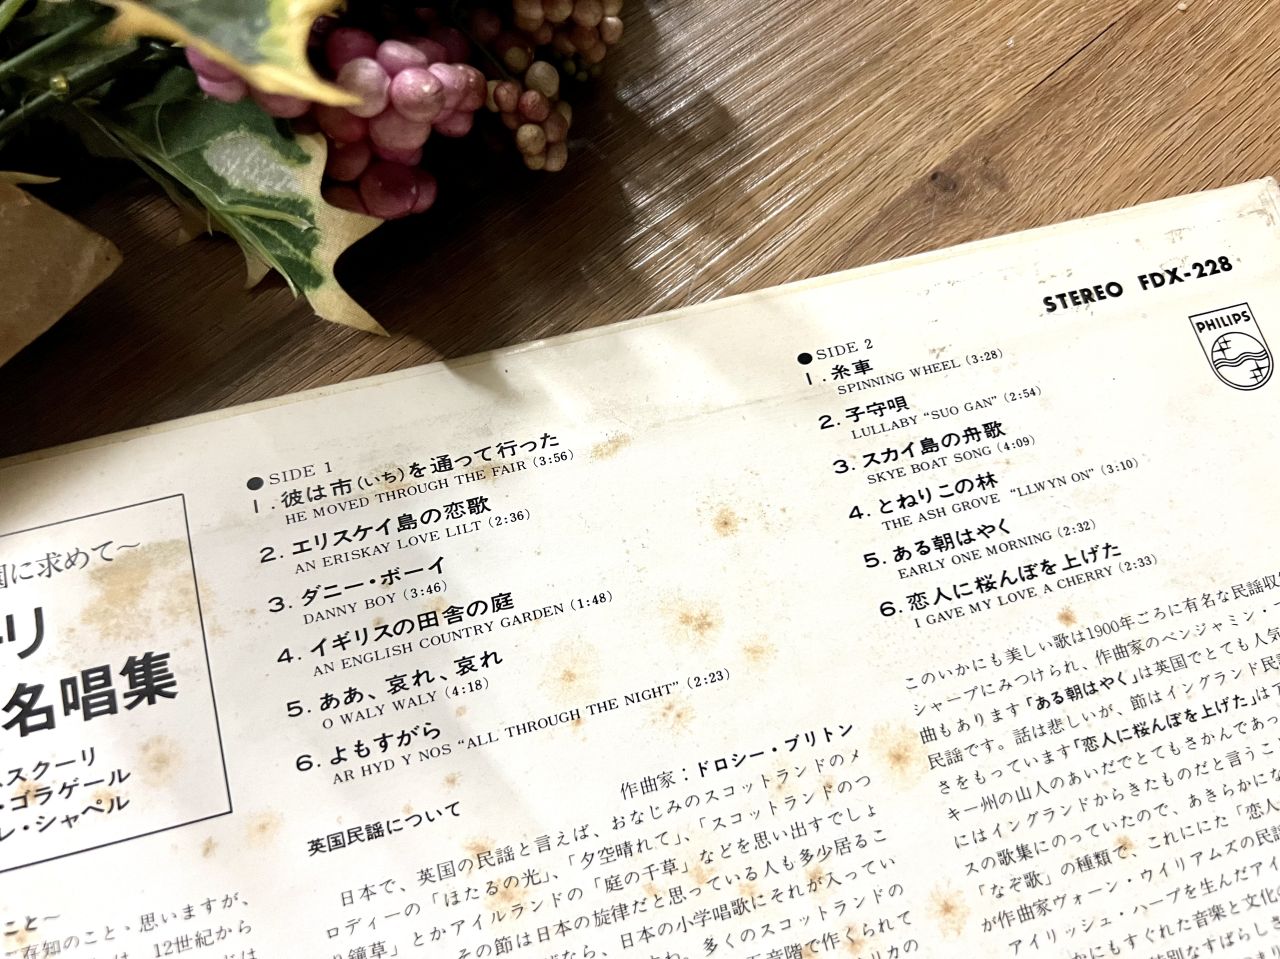 STEREO FDX-228
PHILIPS
国に求めて〜
リ
名唱集
スクーリ
・ゴラゲール
レ・シャペル
● SIDE 1
1. 彼は市(いち)を通って行った
HE MOVED THROUGH THE FAIR (3:56)
2. エリスケイ島の恋歌
AN ERISKAY LOVE LILT (2:36)
3. ダニー・ボーイ
DANNY BOY (3:46)
4. イギリスの田舎の庭
AN ENGLISH COUNTRY GARDEN (1:48)
5. ああ、哀れ、哀れ
O WALY WALY (4:18)
6. よもすがら
AR HYD Y NOS "ALL THROUGH THE NIGHT" (2:23)
● SIDE 2
1. 糸車
SPINNING WHEEL (3:28)
2. 子守唄
LULLABY "SUO GAN" (2:54)
3. スカイ島の舟歌
SKYE BOAT SONG (4:09)
4. とねりこの林
THE ASH GROVE "LLWYN ON" (3:10)
5. ある朝はやく
EARLY ONE MORNING (2:32)
6. 恋人に桜んぼを上げた
I GAVE MY LOVE A CHERRY (2:33)
こと〜
ご存知のこと・思いますが、
は、12世紀から
作曲家：ドロシー・ブリトン
英国民謡について
日本で、英国の民謡と言えば、おなじみのスコットランドのメ
ロディーの「ほたるの光」、「夕空晴れて」、「スコットランドのつ
り鐘草」とかアイルランドの「庭の千草」などを思い出すでしょ
その節は日本の旋律だと思っている人も多少居るこ
なら、日本の小学唱歌にそれが入ってい
多くのスコットランドの
音階で作くられて
リカの
このいかにも美しい歌は1900年ごろに有名な民謡収集
シャープにみつけられ、作曲家のベンジャミン・ブ
曲もあります「ある朝はやく」は英国でとても人気
民謡です。話は悲しいが、節はイングランド民謡
さをもっています「恋人に桜んぼを上げた」はア
キー州の山人のあいだでとてもさかんであっ
にはイングランドからきたものだと言うこ
スの歌集にのっていたので、あきらかにな
「なぞ歌」の種類で、これににた「恋人
が作曲家ヴォーン・ウイリアムスの民謡
アイリッシュ・ハープを生んだアイ
かにもすぐれた音楽と文化
特別なすばらしさ